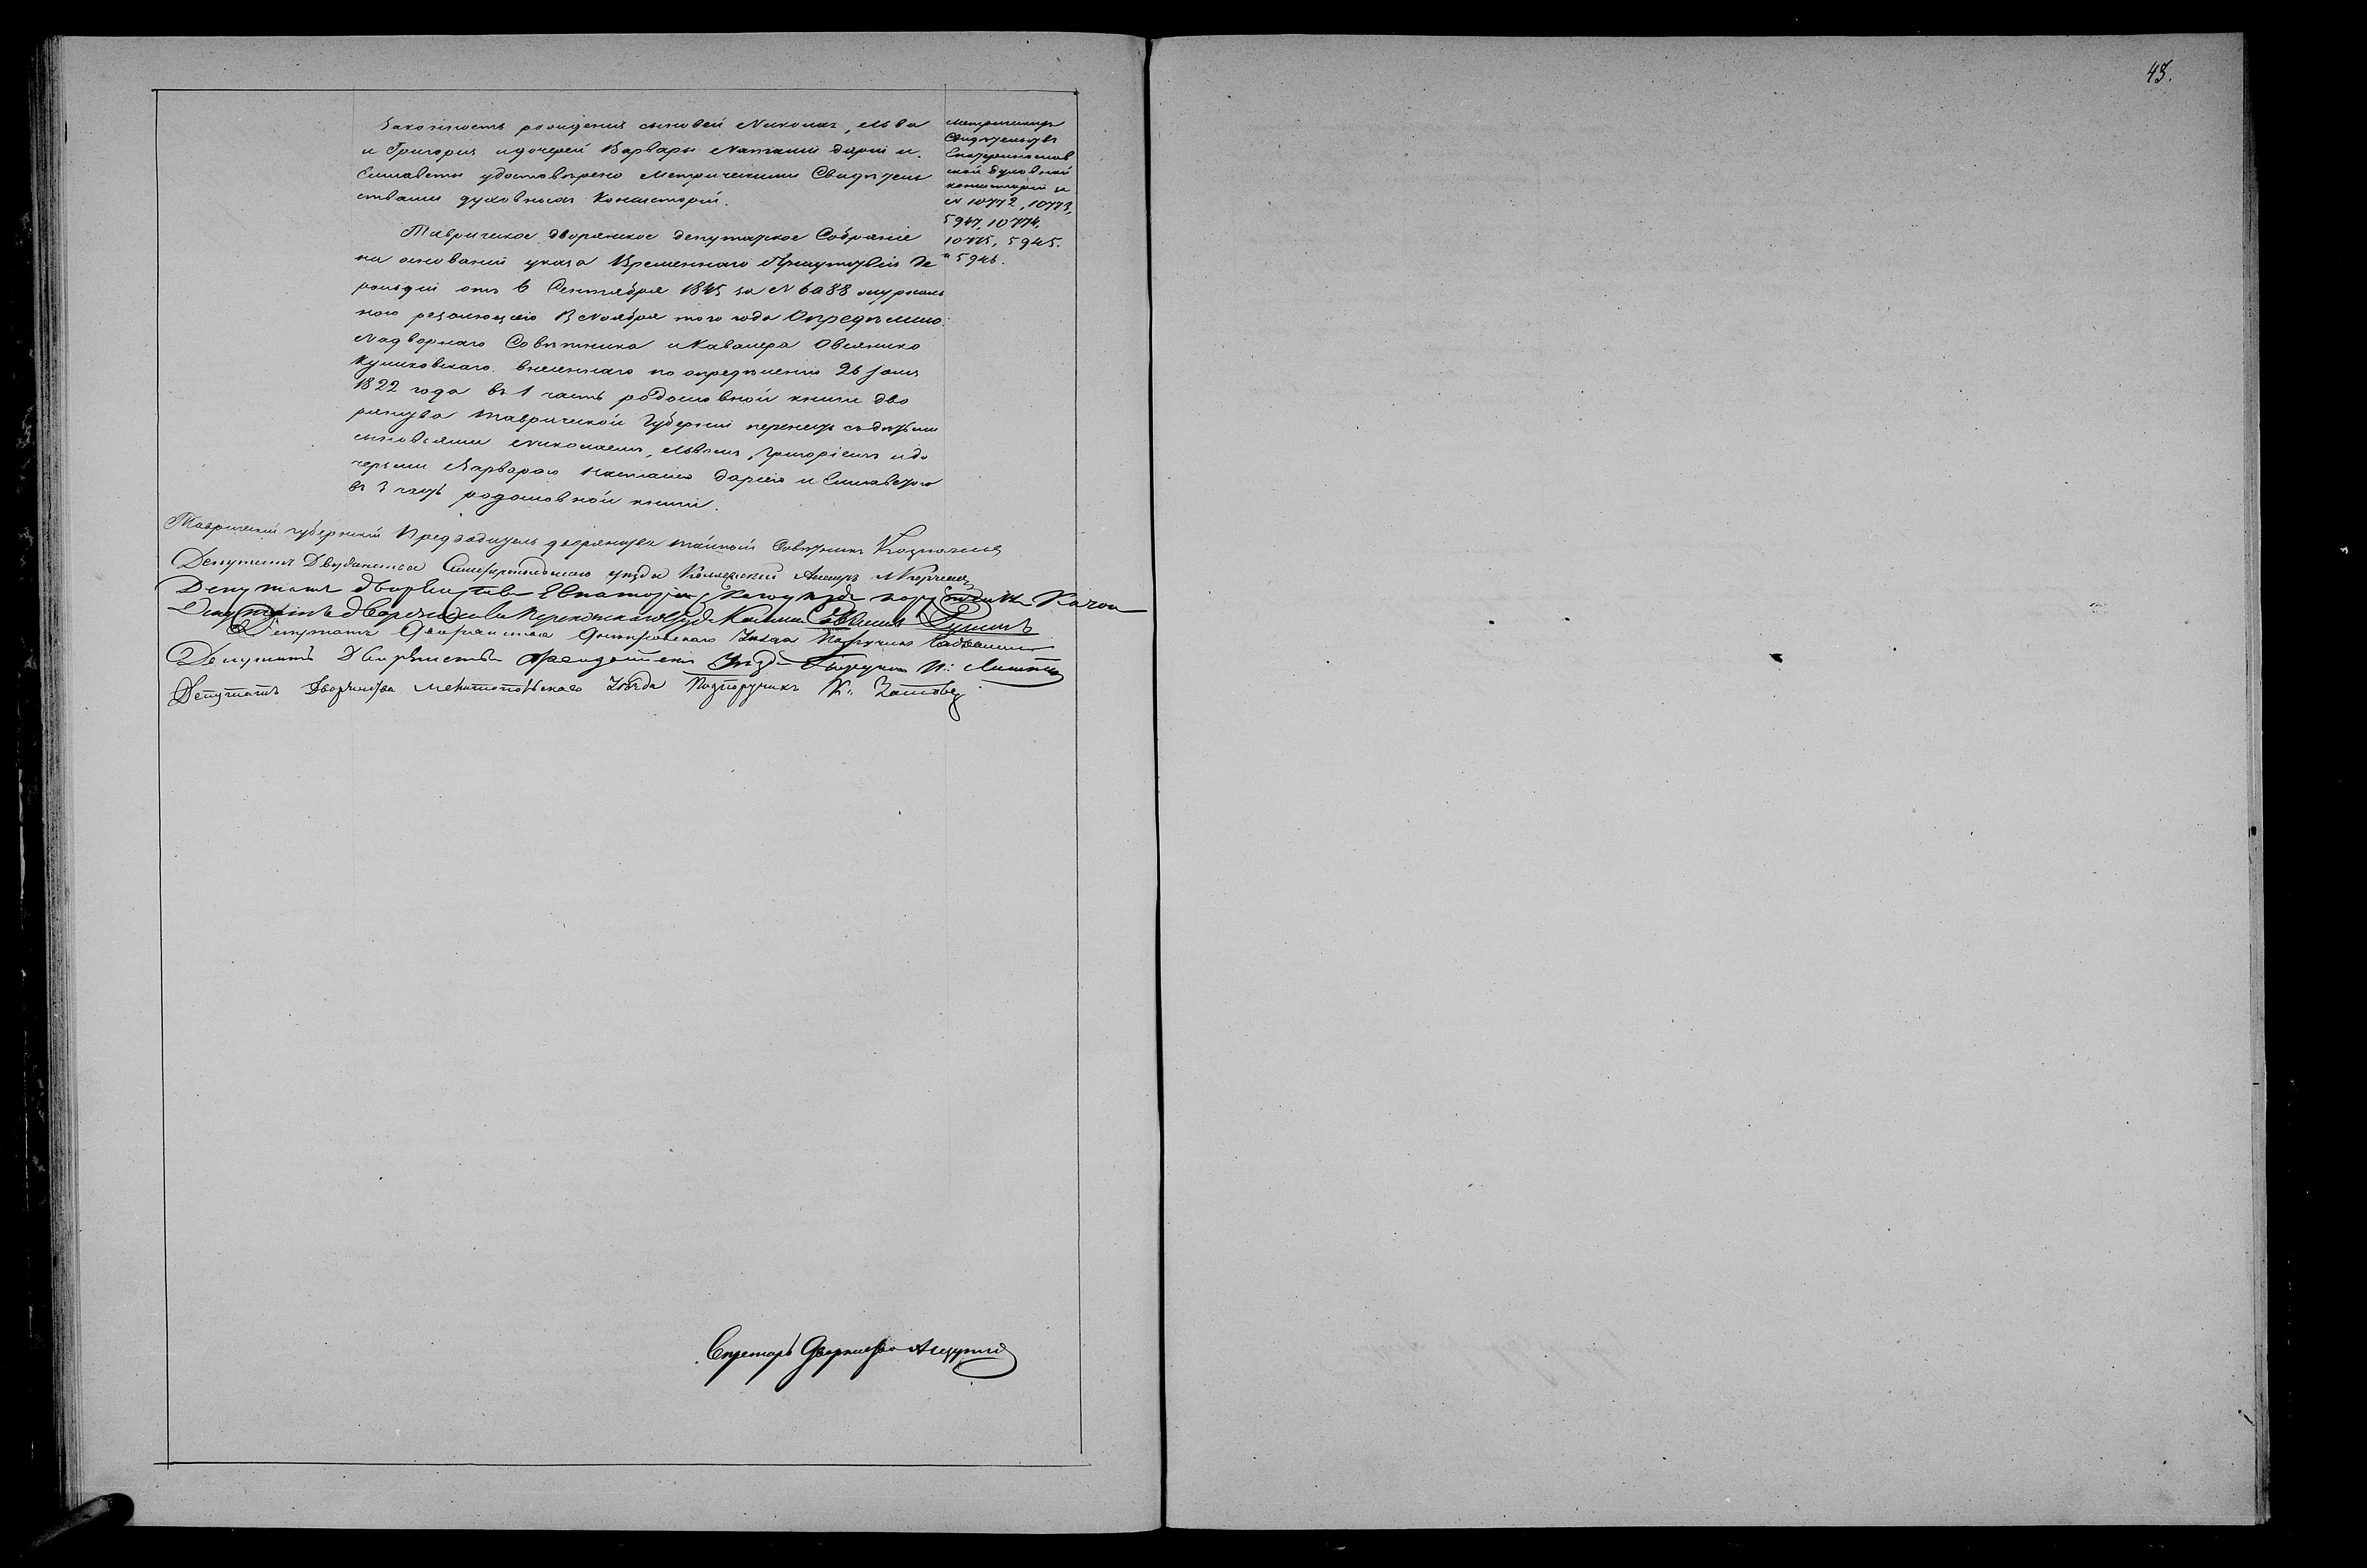 43.
Законность рождения сыновей Николая, Льва
и Григория и дочерей Варвары Наталии Дарiи и
Елисаветы удостоверено Метрическими Свидѣтель
ствами духовныхъ Консисторiй.
Таврическое дворянское депутатское Собранiе
на основанiи указа Временнаго Присутствiя Ге
рольдiи отъ 6 Сентября 1845 за N 6088 журналь
ного резолюцiею Ноября того года Опредѣлило:
Надворнаго Совѣтника и Кавалера Овсянико
Куликовскаго внесеннаго по опредѣленiю 26 Iюля
1822 года въ 1 часть родословной книги дво
рянства Таврической Губернiи перенесть съ дѣтьми
сыновьями Николаемъ, Львомъ, Григорiемъ и до
черьми Варварою Наталiею Дарiею и Елисаветою
въ 3 часть родословной книги.
Метрическiя
Свидѣтельства
Екатеринослав
ской Духовной
консисторiи за
N 10772, 10773,
5947, 10774,
10775, 5945.
и 5946.
Таврическiй губернскiй Предводитель дворянства тайный Совѣтникъ Казначеев
Депутатъ Дворянства Симферопольского уѣзда Коллежский
Депутатъ Дворянства Евпаторiйскаго уѣзда
Депутатъ Дворянства Перекопскаго уѣзда
Депутатъ Дворянства Днѣпровскаго Уѣзда Поручикъ
Депутатъ Дворянства Феодосiйскаго Уѣзда
Депутатъ Дворянства Мелитопольскаго Уѣзда Подпоручикъ
Секретарь Дворянства